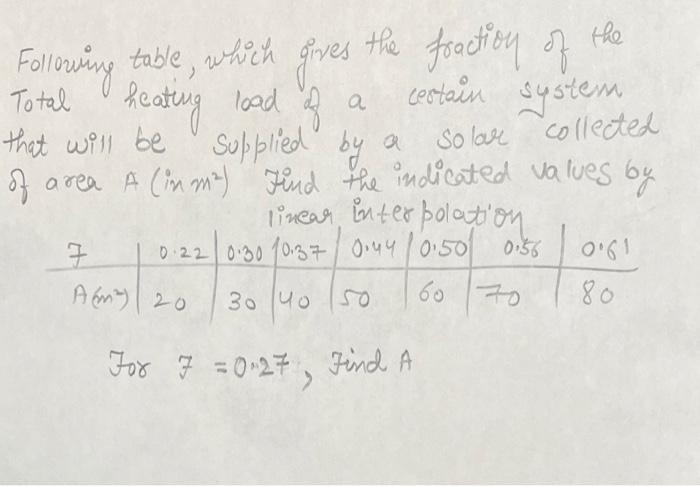 Following table, which gives the fraction of the
Total heating load of a certain system
that will be supplied by a solar collected
of area A (in m²) Find the indicated values by
linear interpolation
F | 0.22 | 0.30 | 0.37 | 0.44 | 0.50 | 0.56 | 0.61
A(m²) | 20 | 30 | 40 | 50 | 60 | 70 | 80
For F = 0.27, Find A